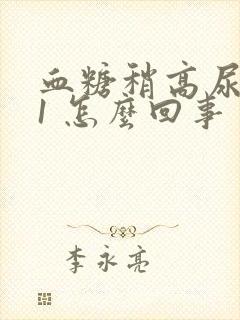 血糖稍高尿
1怎麼回事
李永亮